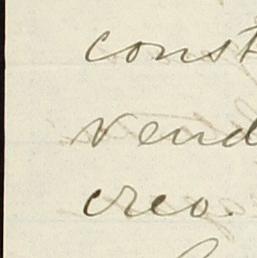 const
vend
creo.